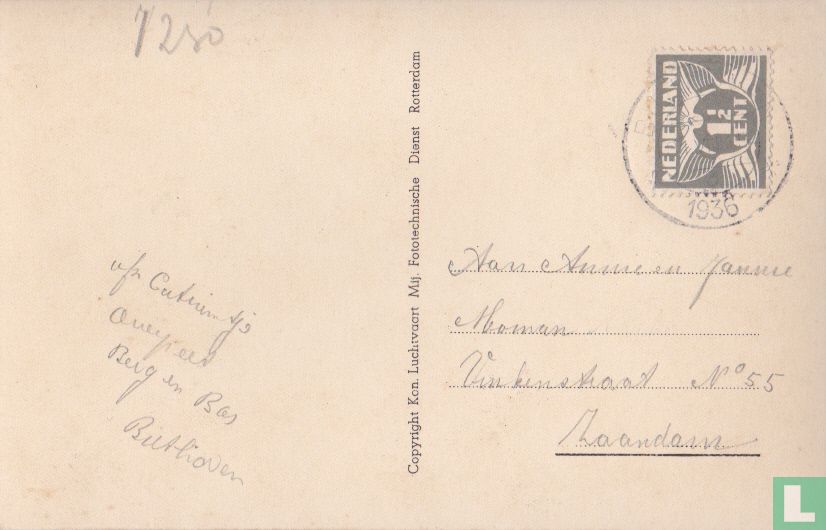 7250
afz Catrientje
Berg en Bos
Bilthoven
Copyright Kon. Luchtvaart Mij. Fototechnische Dienst Rotterdam
NEDERLAND
1½
CENT
1936
Aan Annie en Jannie
Moman
Vinkenstraat No 55
Zaandam
L